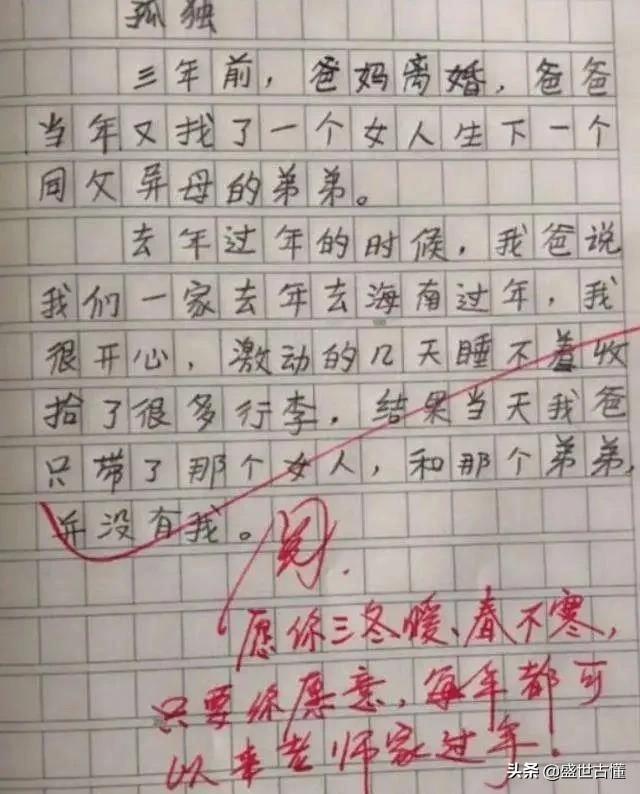 孤独
三年前，爸妈离婚，爸爸
当年又找了一个女人生下一个
同父异母的弟弟。
去年过年的时候，我爸说
我们一家去年去海南过年，我
很开心，激动的几天睡不着收
拾了很多行李，结果当天我爸
只带了那个女人，和那个弟弟，
并没有我。
阅.
愿你三冬暖、春不寒，
只要你愿意，每年都可
以来老师家过年.
头条 @盛世古懂